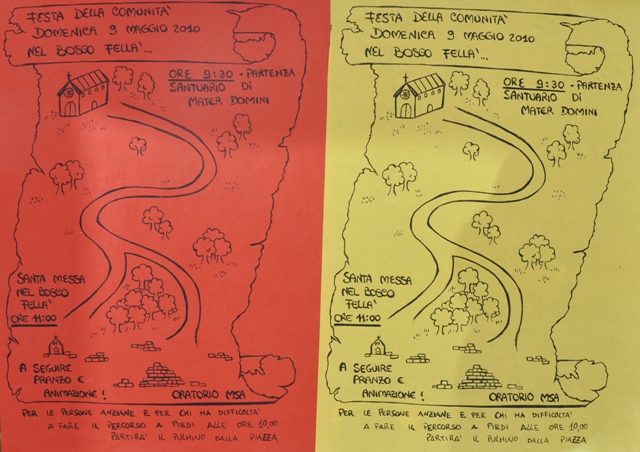 FESTA DELLA COMUNITA'
DOMENICA 9 MAGGIO 2010
NEL BOSCO FELLA'...
ORE 9:30 - PARTENZA
SANTUARIO DI
MATER DOMINI
SANTA MESSA
NEL BOSCO
FELLA'
ORE 11:00
A SEGUIRE
PRANZO E
ANIMAZIONE!
ORATORIO MSA
PER LE PERSONE ANZIANE E PER CHI HA DIFFICOLTA'
A FARE IL PERCORSO A PIEDI ALLE ORE 10,00
PARTIRA' IL PULMINO DALLA PIAZZA
FESTA DELLA COMUNITA'
DOMENICA 9 MAGGIO 2010
NEL BOSCO FELLA'...
ORE 9:30 - PARTENZA
SANTUARIO DI
MATER DOMINI
SANTA MESSA
NEL BOSCO
FELLA'
ORE 11:00
A SEGUIRE
PRANZO E
ANIMAZIONE!
ORATORIO MSA
PER LE PERSONE ANZIANE E PER CHI HA DIFFICOLTA'
A FARE IL PERCORSO A PIEDI ALLE ORE 10,00
PARTIRA' IL PULMINO DALLA PIAZZA